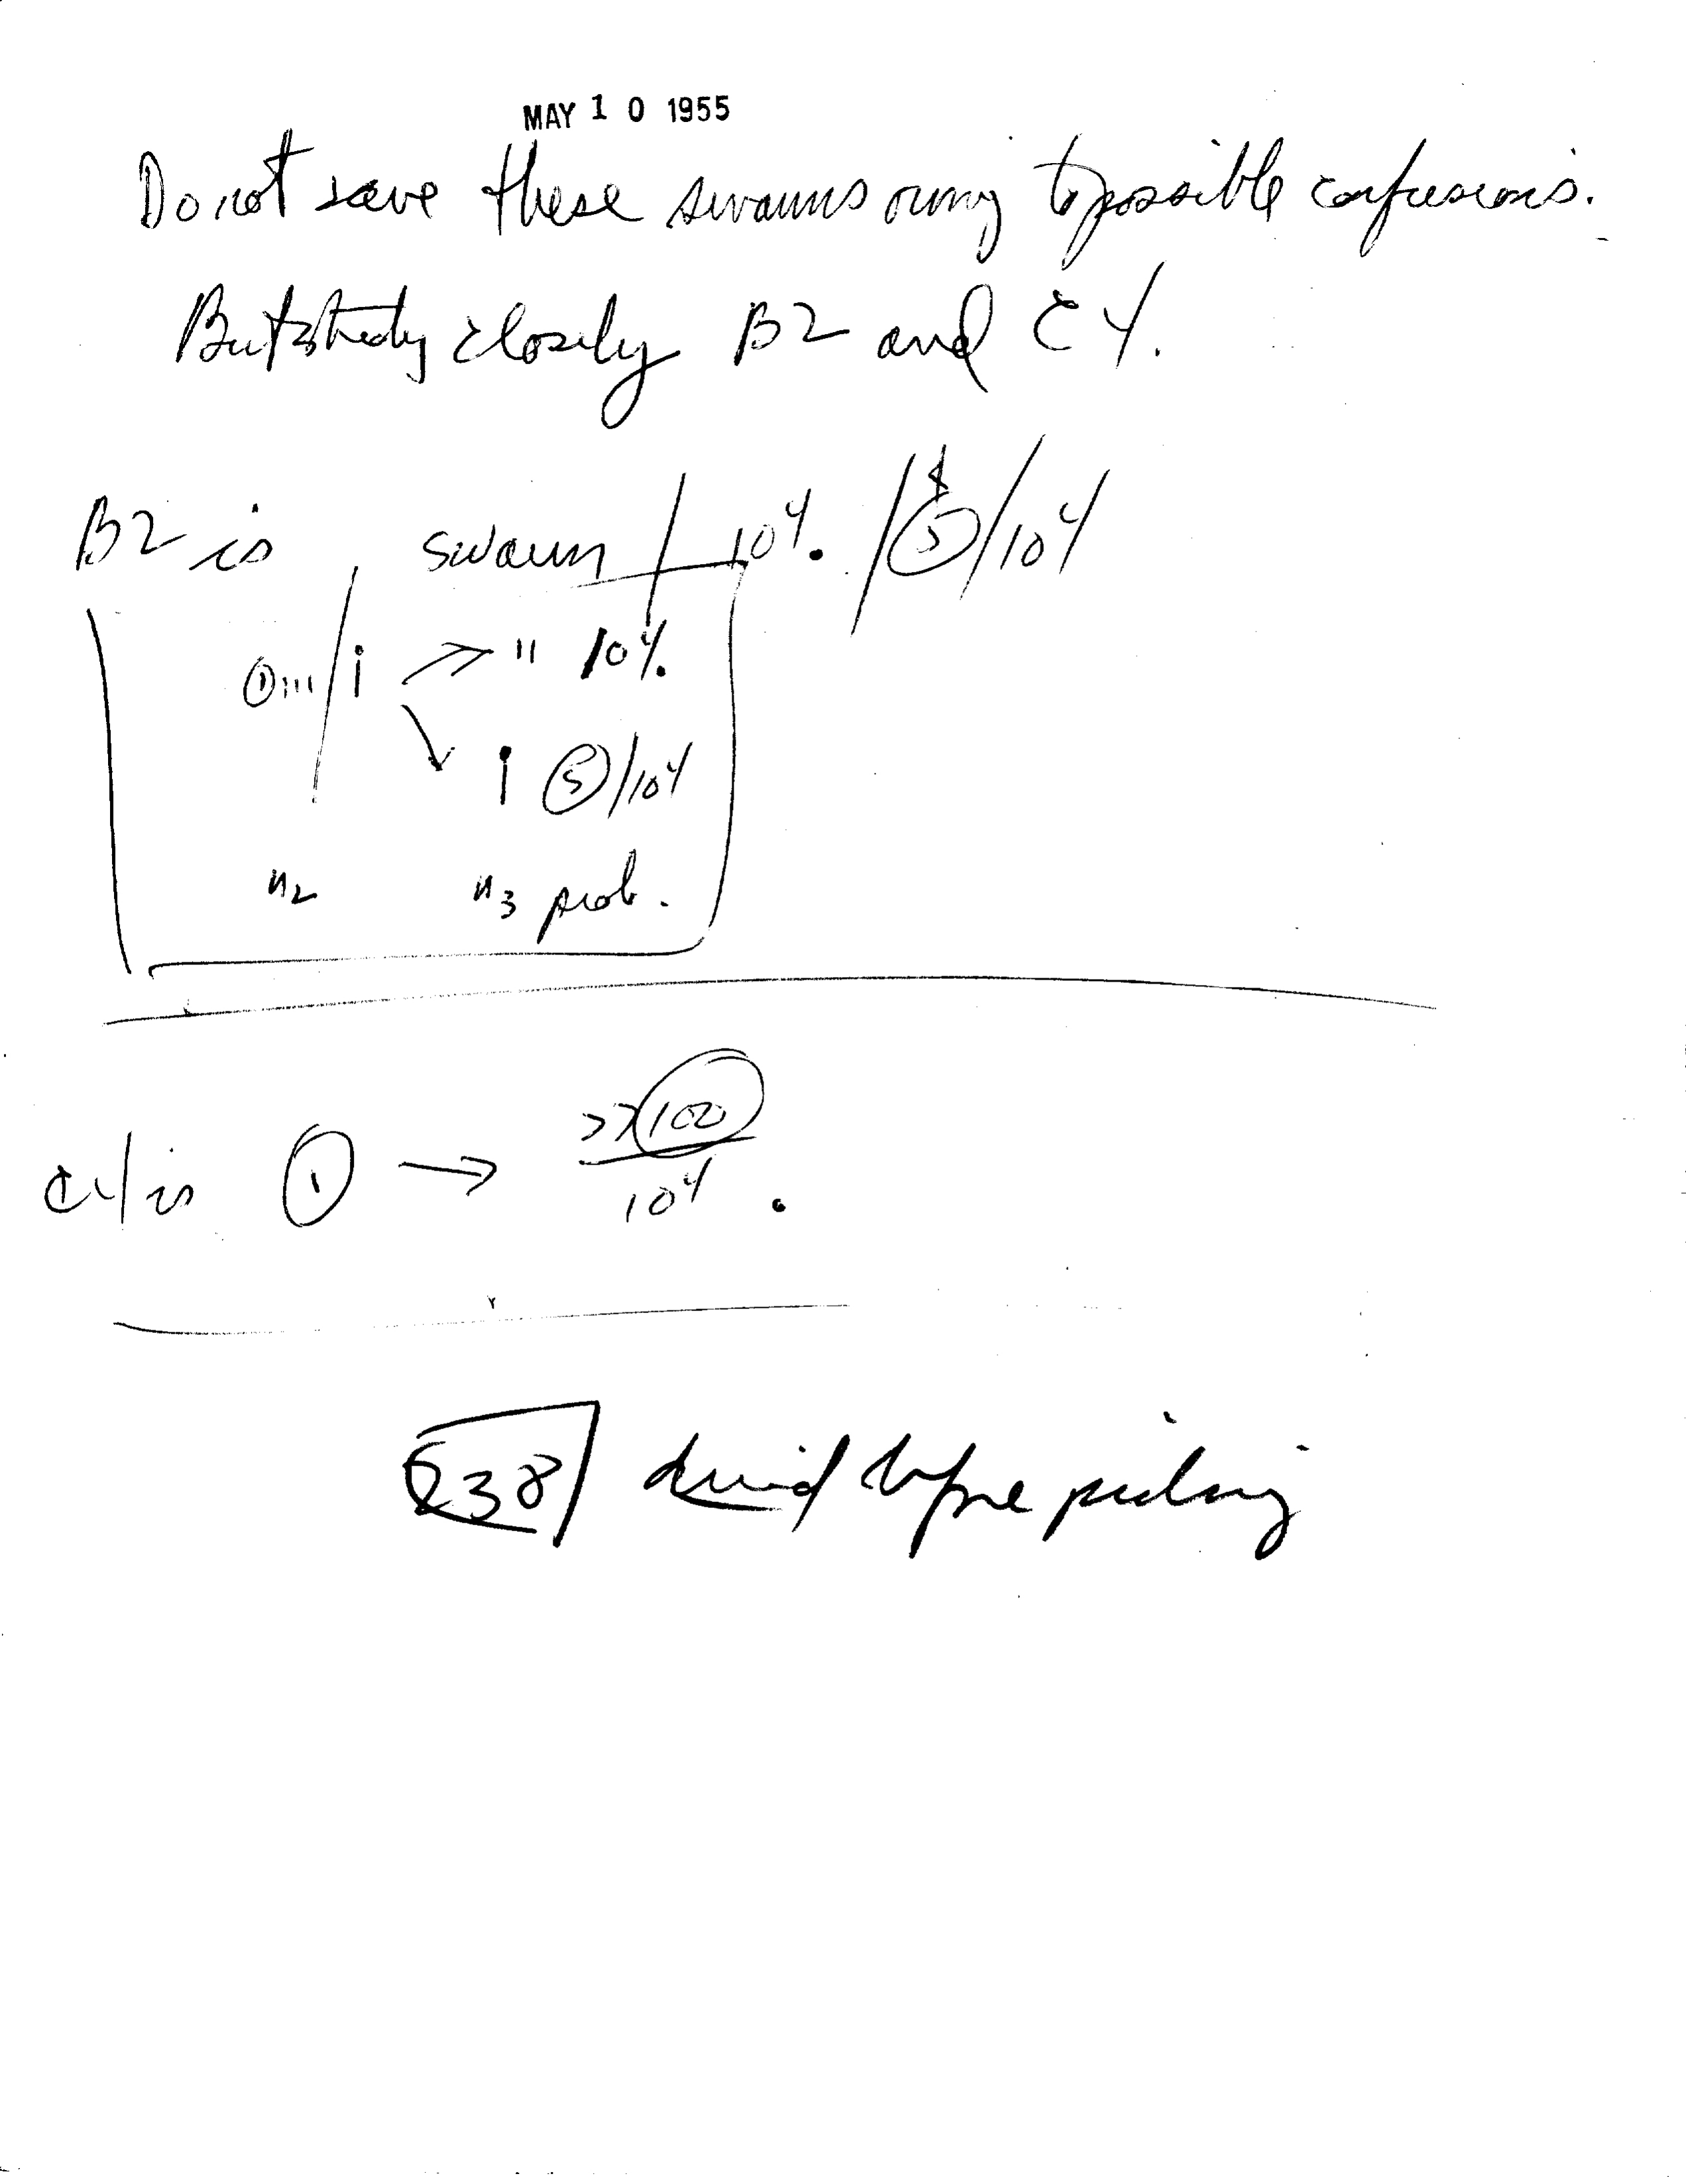 MAY 10 1955
Do not save these swarms owing to possible confusions.
But study closely B2 and C4.
B2 is swarm / 10⁴. / ⑤ / 10⁴
① ''' / i → " 10⁴.
i ⑤/10⁴
n₂ n₃ prob.
C4 is ① → >>100
10⁴.
238 died before picking